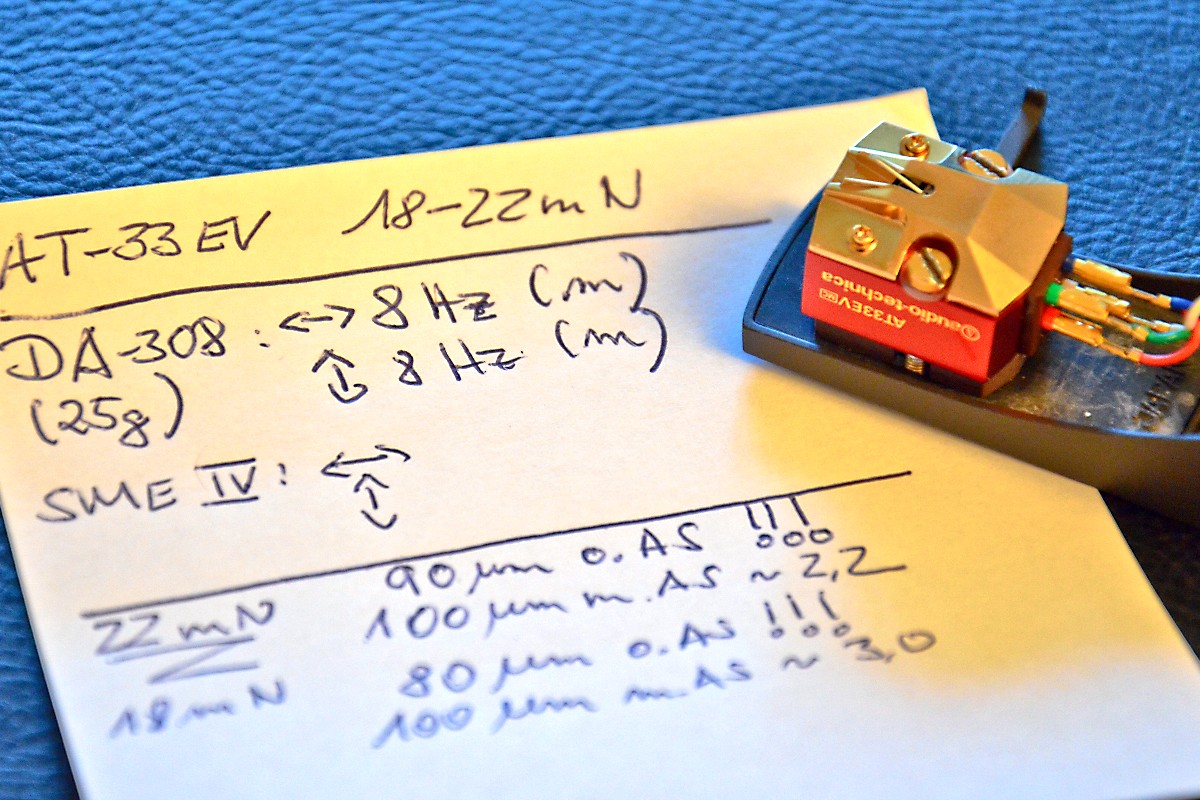 AT-33EV 18-22mN
DA-308: ↔ 8 Hz (m)
↕ 8 Hz (m)
(25g)
SME IV: ↔
↕
22mN 90 µm o.AS !!!
100 µm m.AS ~ 2,2
18mN 80 µm o.AS !!!
100 µm m.AS ~ 3,0
audio-technica
AT33EV MC
JAPAN